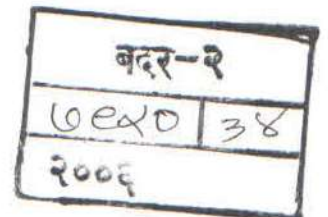 बदर-२
७९४० | ३४
२००६